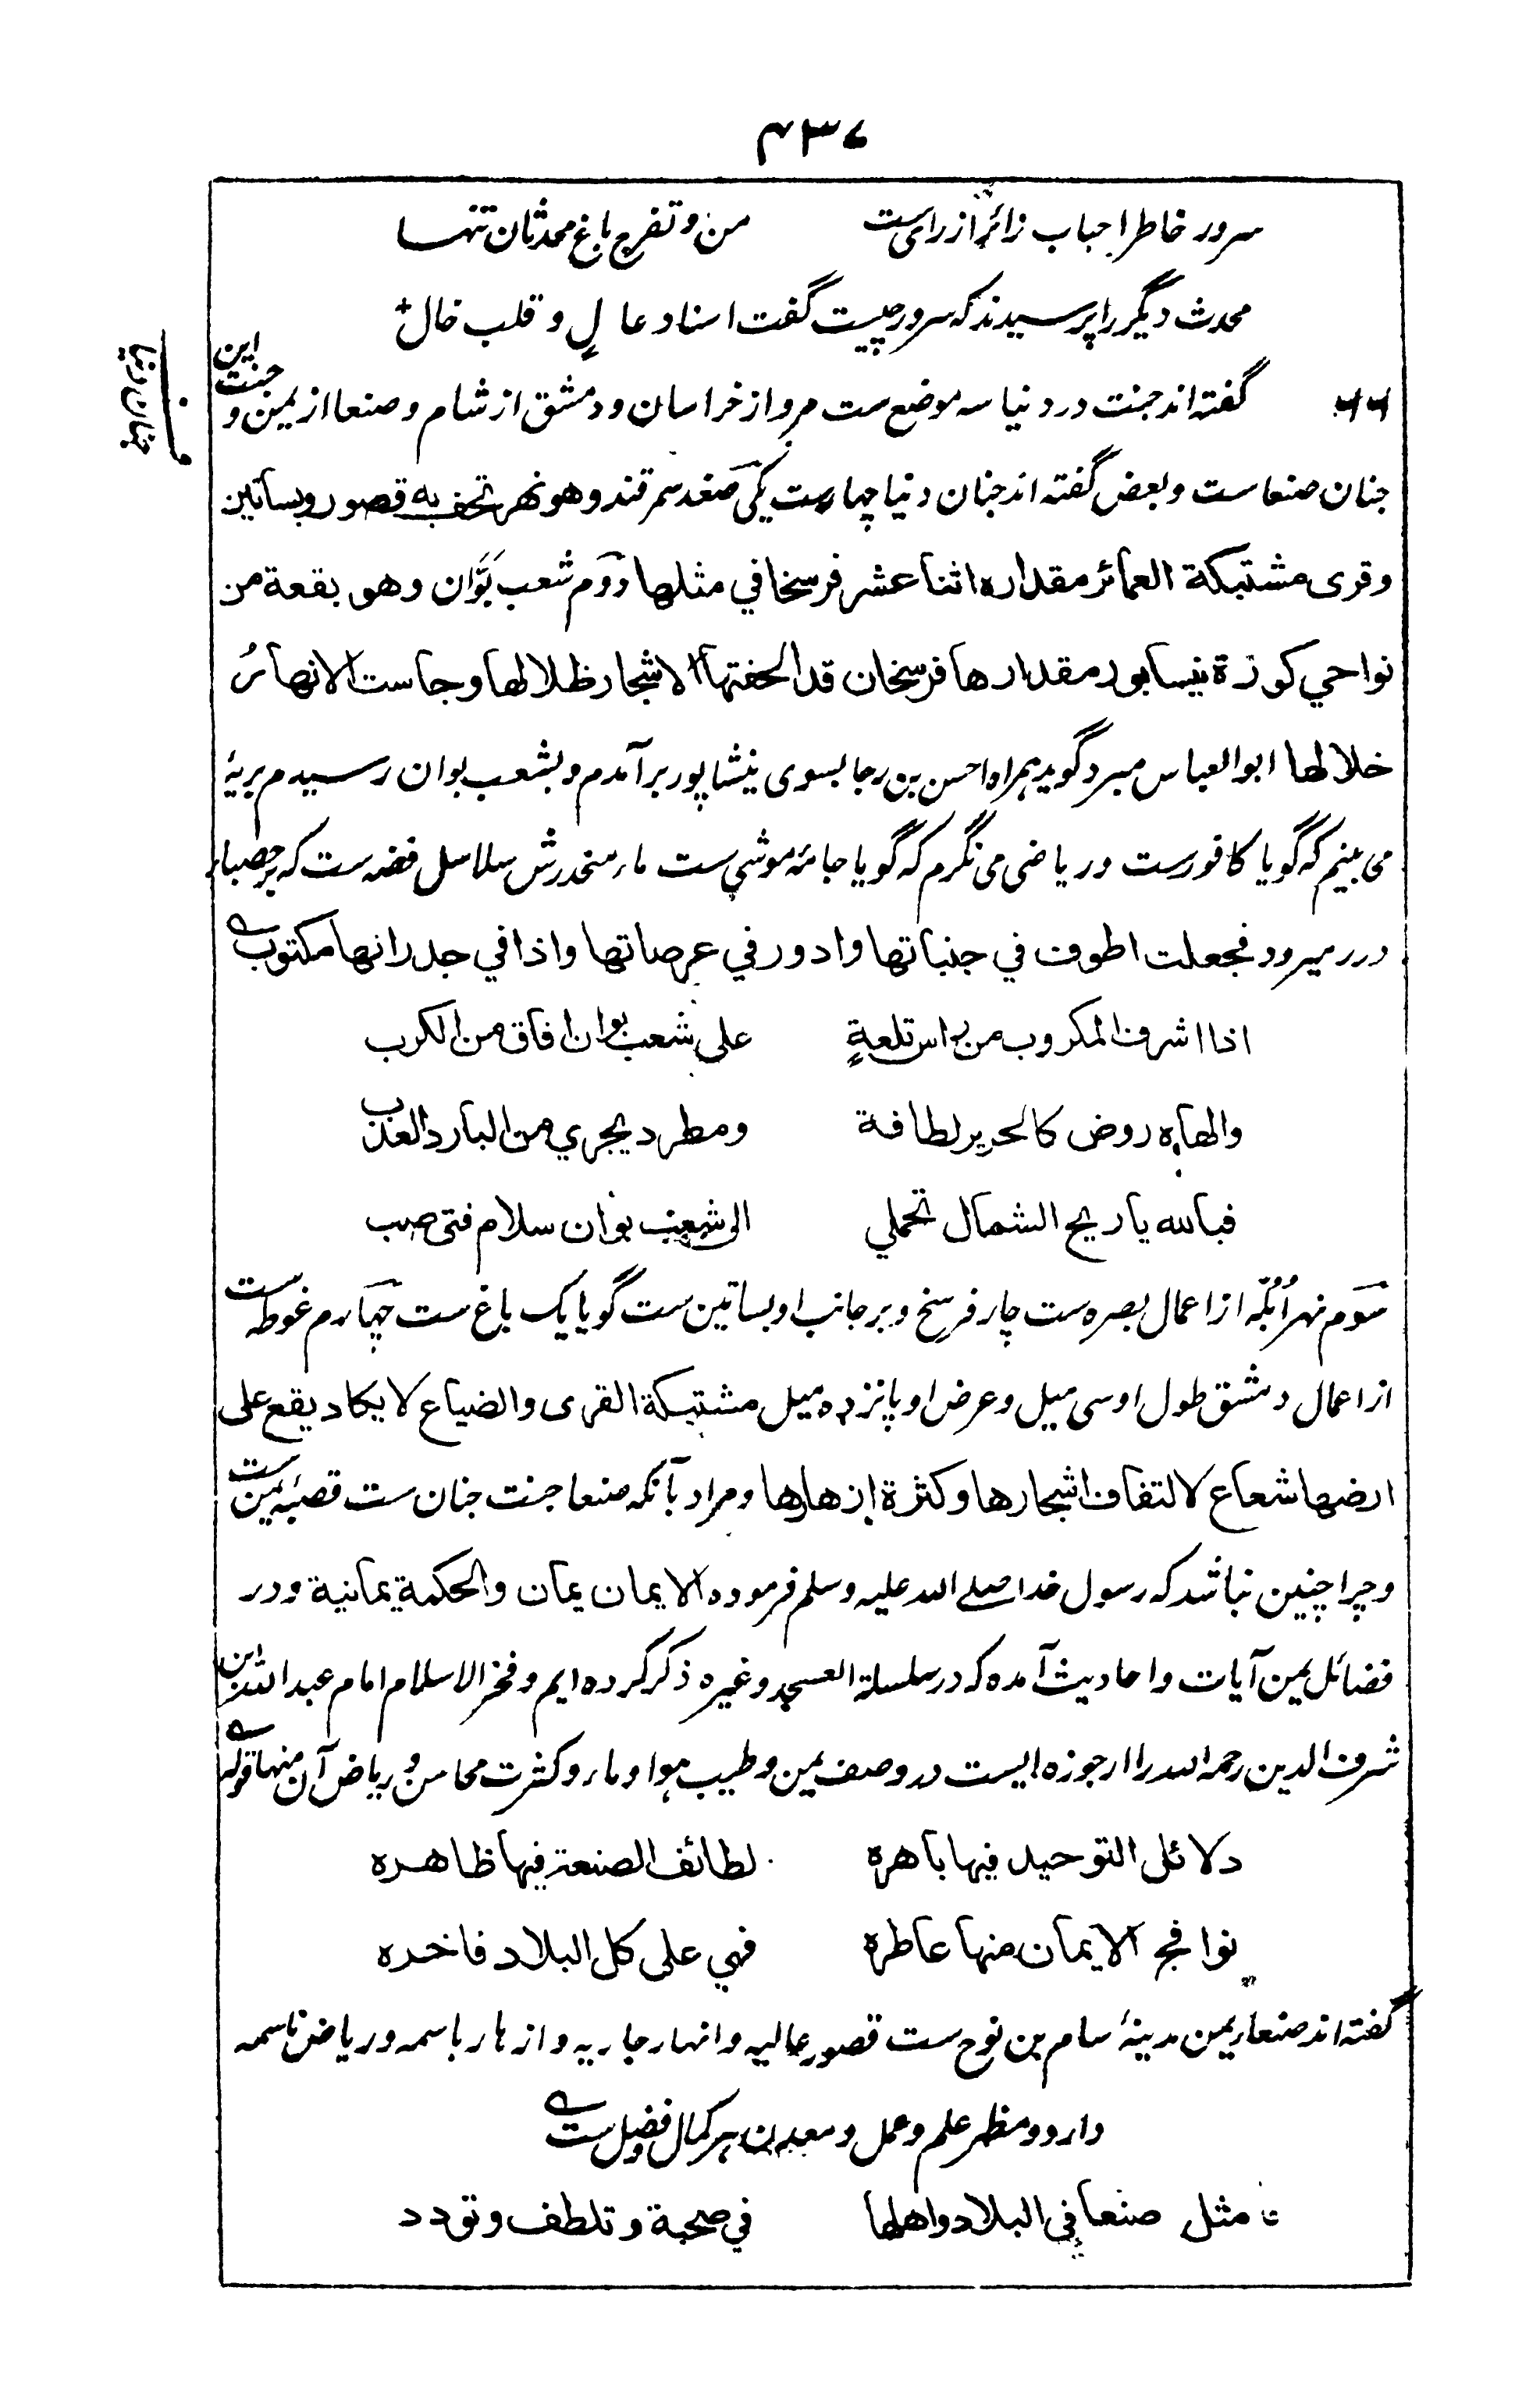 ۴۳۷
سرور خاطر احباب زائر از رای ست    من و تفرج باغ محدثان تنها
محدث دیگر را پرسیدند که سرور چیست گفت اسناد عالٍ و قلب خالٍ
گفته اند جنت در دنیا سه موضع ست مرو از خراسان و دمشق از شام و صنعا از یمن و این جنت
جنان دنیا
جنان صنعاست و بعض گفته اند جنان دنیا چهارست یکی صغد سمرقند وهو نهر تحف به قصور وبساتین
وقری مشتبکة العمائر مقداره اثنا عشر فرسخا في مثلها دوم شعب بوّان وهو بقعة من
نواحي کورة نیسابور مقدارها فرسخان قد الحفتها الاشجار ظلالها وجاست الانهارُ
خلالها ابو العباس مبرد گوید همراه احسن بن رجا بسوی نیشاپور برآمدم و بشعب بوان رسیدم بریۀ
می بینم که گویا کافورست و ریاضی می نگرم که گویا جامۀ موشی ست ماء منحدرش سلاسل فضه ست که بر حصباء
درر میرود فجعلت اطوف في جنباتها وادور في عرصاتها واذا في جدرانها مکتوب
اذا اشرف المکروب من راس تلعةٍ    علی شعب بوان افاق من الکرب
والهاه روض کالحریر لطافة    ومطرد یجري من البارد العذب
فبالله یا ریح الشمال تحملي    الی شعب بوان سلام فتی صب
سوم نهر اُبُلّه از اعمال بصره ست چار فرسخ و بر جانب او بساتین ست گویا یک باغ ست چهارم غوطه ست
از اعمال دمشق طول او سی میل و عرض او پانزده میل مشتبکة القری والضیاع لا یکاد یقع علی
ارضها شعاع لالتفاف اشجارها وکثرة ازهارها و مراد بآنکه صنعا جنت جنان ست قصبۀ یمن ست
و چرا چنین نباشد که رسول خدا صلے الله علیه وسلم فرموده الایمان یمان والحکمة یمانیة و در
فضائل یمن آیات و احادیث آمده که در سلسلة العسجد و غیره ذکر کرده ایم و فخر الاسلام امام عبد الله ابن
شرف الدین رحمه الله را ارجوزه ایست در وصف یمن و طیب هوا و ماء و کثرت محاسن و ریاض آن منها قوله
دلائل التوحید فیها باهره    لطائف الصنعة فیها ظاهره
نوافج الایمان منها عاطره    فهي علی کل البلاد فاخره
گفته اند صنعاء یمن مدینۀ سام بن نوح ست قصور عالیه و انهار جاریه و ازهار باسمه و ریاض ناسمه
دارد و مظهر علم و عمل و معدن هر کمال و فضل ست
مثل صنعا في البلاد واهلها    في صحبة وتلطف وتودد